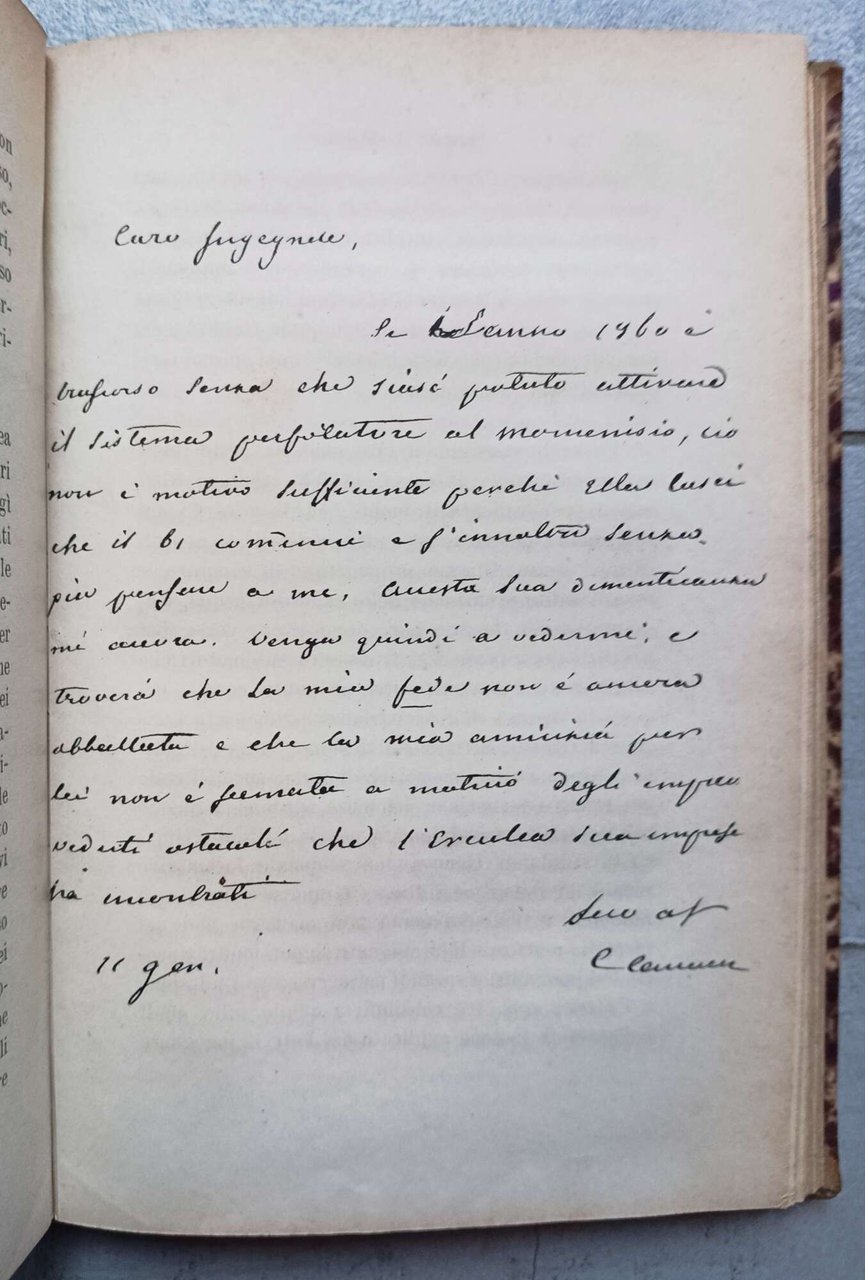 Caro Ingegnere,
Se l'anno 1860 è
trascorso senza che siasi potuto attivare
il sistema perforatore al Moncenisio, ciò
non è motivo sufficiente perchè Ella lasci
che il 61 cominci e s'innoltri senza
più pensare a me. Questa sua dimenticanza
mi accora. Venga quindi a vedermi, e
troverà che la mia fede non è ancora
abbattuta e che la mia amicizia per
lei non è scemata a motivo degli impre
veduti ostacoli che l'Erculea sua impresa
ha incontrati.
Suo af
C Cavour
11 gen.